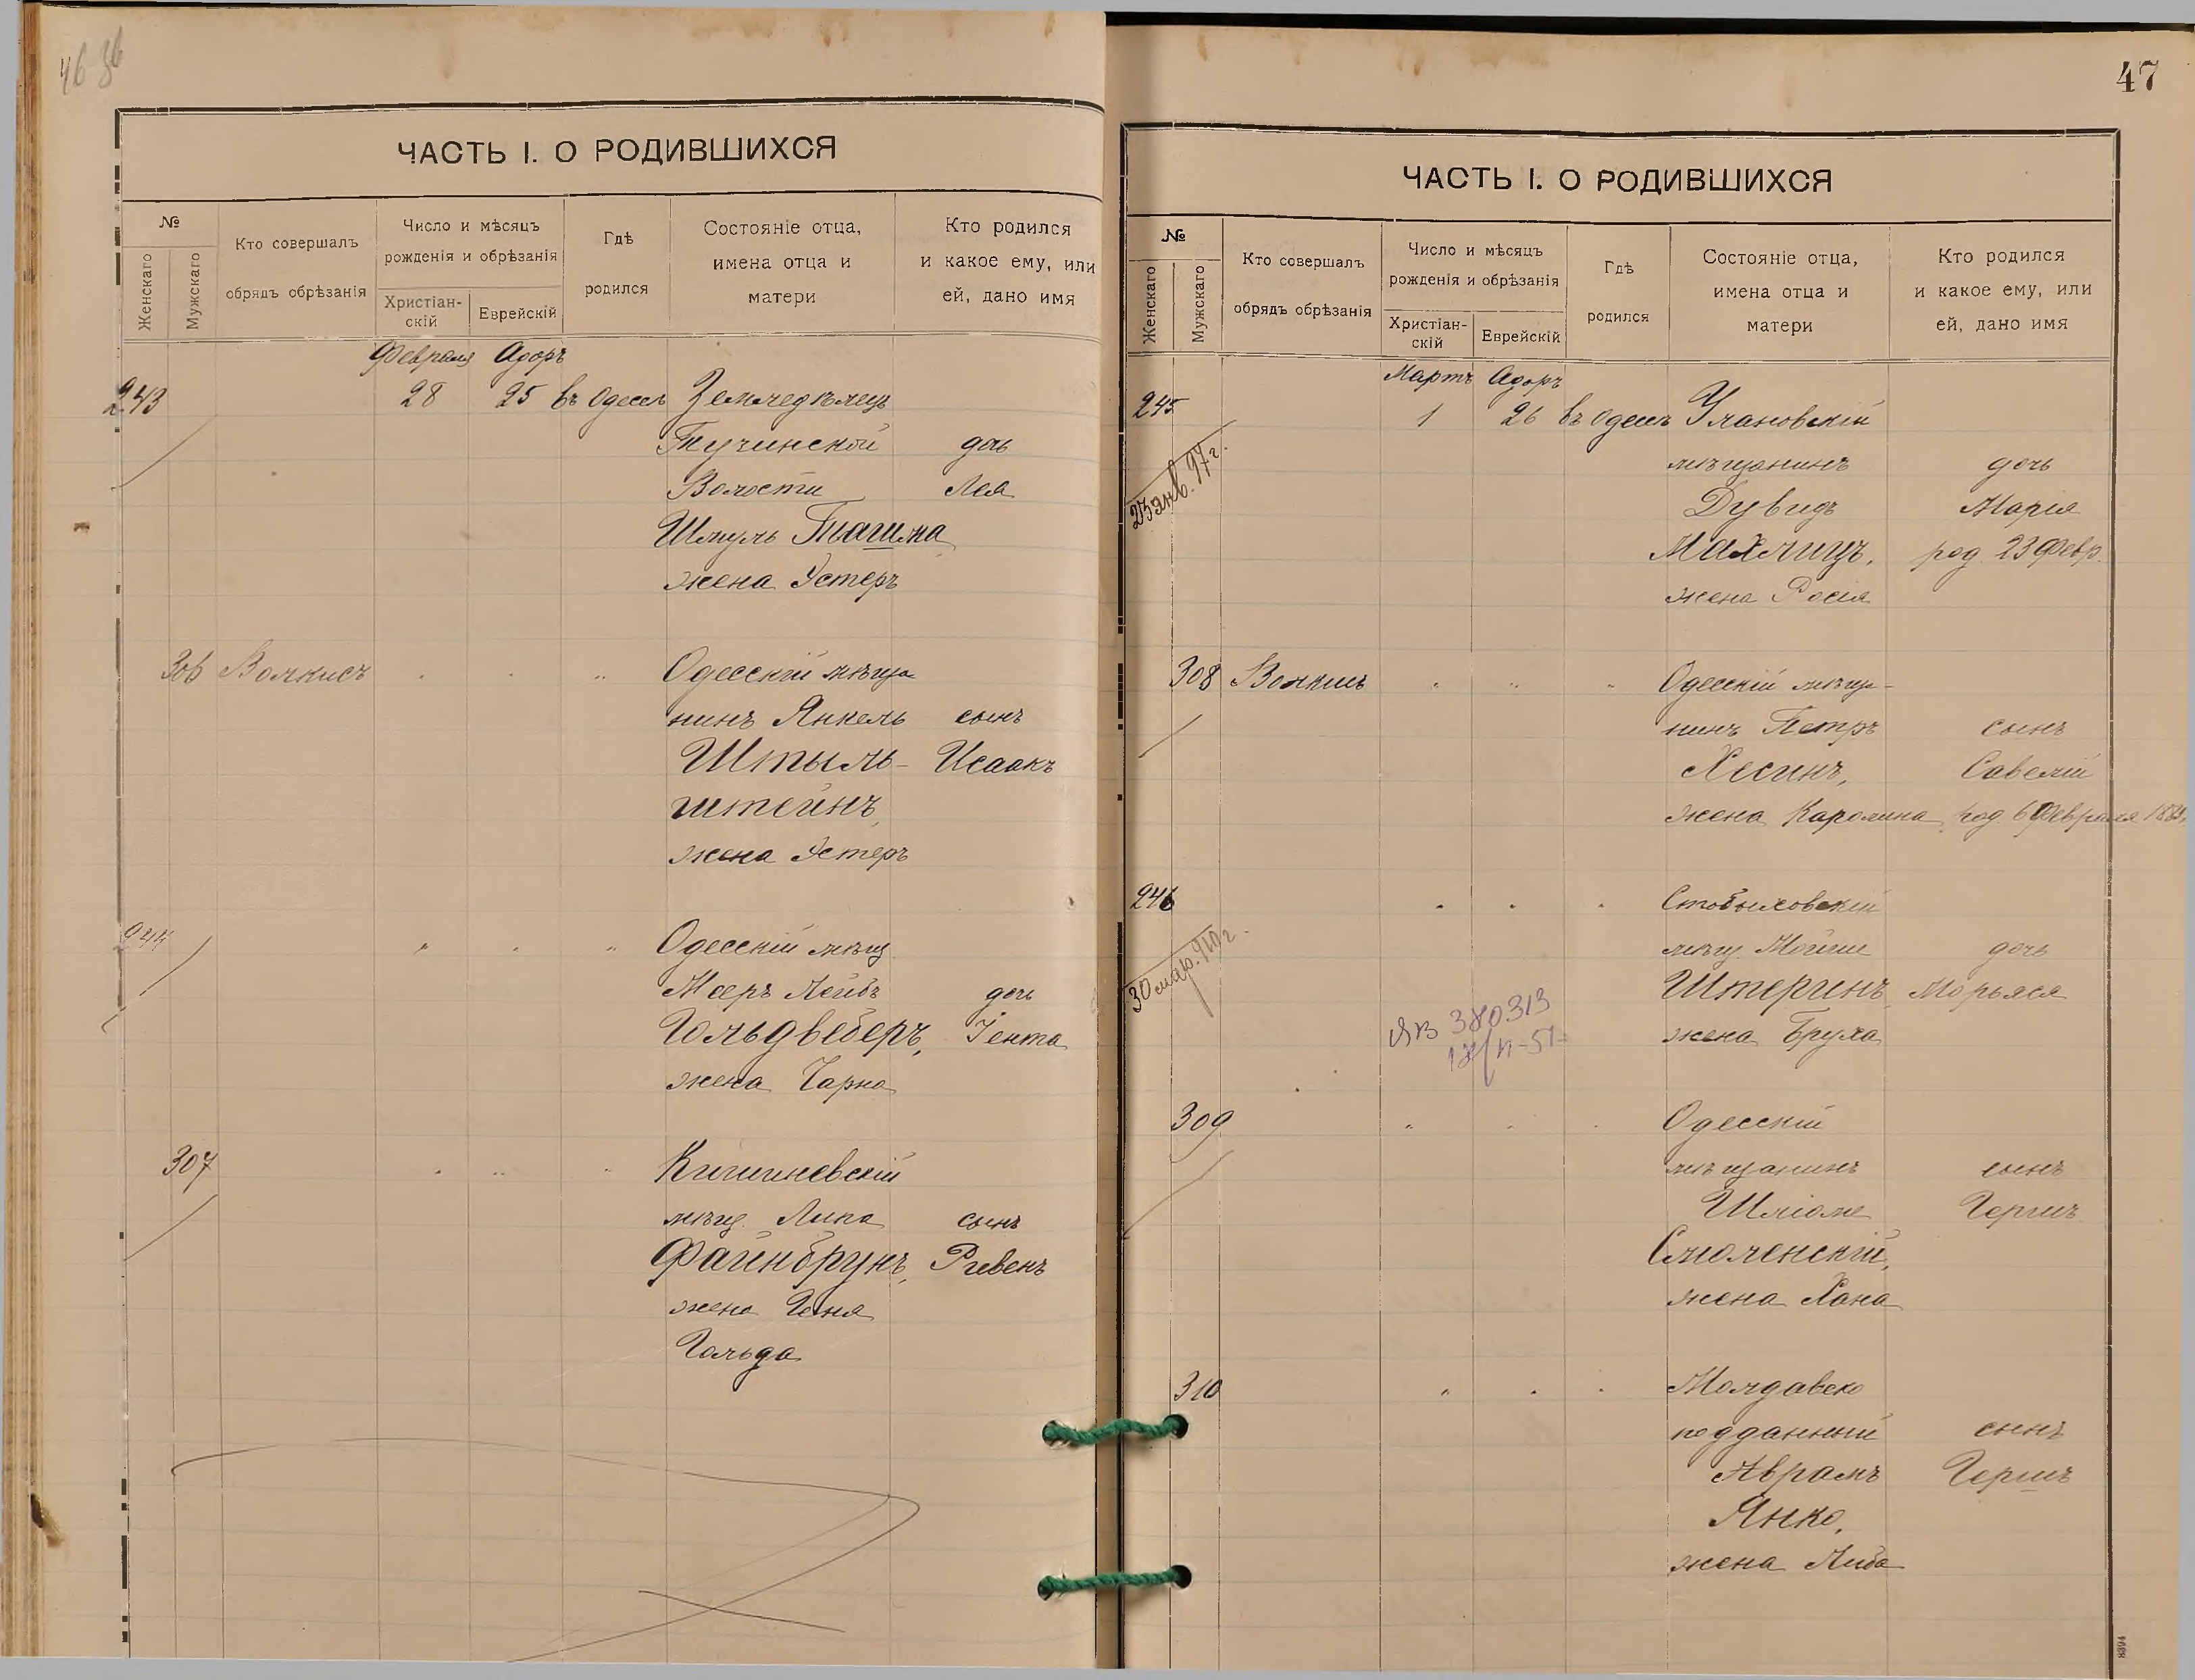 46 36
ЧАСТЬ I. О РОДИВШИХСЯ
№
Женскаго
Мужскаго
Кто совершалъ
обрядъ обрѣзанія
Число и мѣсяцъ
рожденія и обрѣзанія
Христіан-
скій
Еврейскій
Гдѣ
родился
Состояніе отца,
имена отца и
матери
Кто родился
и какое ему, или
ей, дано имя
Февраля Адоръ
243 28 25 въ Одессѣ Земледѣлецъ
Тучинской дочь
Волости Лея
Шмуль Ташма
жена Эстеръ
306 Волкисъ " " " Одесскій мѣща
нинъ Янкель сынъ
Штыль- Исаакъ
штейнъ,
жена Эстеръ
244 " " " Одесскій мѣщ.
Мееръ Лейбъ дочь
Гольдвеберъ, Іента
жена Чарна
307 " " " Кишиневскій
мѣщ. Липа сынъ
Файнбрунъ, Рувенъ
жена Геня
Гольда
47
ЧАСТЬ I. О РОДИВШИХСЯ
№
Женскаго
Мужскаго
Кто совершалъ
обрядъ обрѣзанія
Число и мѣсяцъ
рожденія и обрѣзанія
Христіан-
скій
Еврейскій
Гдѣ
родился
Состояніе отца,
имена отца и
матери
Кто родился
и какое ему, или
ей, дано имя
Мартъ Адоръ
245 1 26 въ Одессѣ Улановскій
мѣщанинъ дочь
23 янв. 97 г. Дувидъ Марія
Махлицъ, род. 23 Февр.
жена Росія
308 Волкисъ " " " Одесскій мѣща-
нинъ Петръ сынъ
Хесинъ, Савелій
жена Каролина род. 6 Февраля
246 " " " Стобыховскій
мѣщ. Мойше дочь
30 мар. 910 г. Штеринъ Марьяся
ЯВ 380313
жена Бруха
309 " " " Одесскій
мѣщанинъ сынъ
Шліоме Гершъ
Смоленскій,
жена Хана
310 " " " Молдавско
подданный сынъ
Аврамъ Гершъ
Янко,
жена Либа
8394